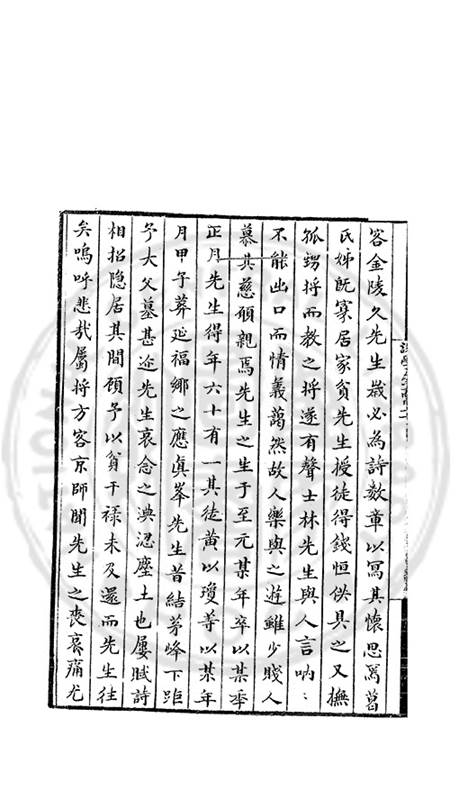 客金陵久先生嵗必為詩數章以寫其懷思焉葛
氏姊既寡居家貧先生授徒得錢恒供具之又撫
孤甥将而教之将遂有聲士林先生與人言呐〻
不能出口而情義藹然故人樂與之遊雖少賤人
慕其慈願親焉先生之生于至元某年卒以某年
正月先生得年六十有一其徒黄以瓊等以某年
月甲子葬延福鄉之應真峯先生昔結茅峰下距
予大父墓甚迩先生哀念之淟涊塵土也屢賦詩
相招隐居其間顧予以貧干禄未及還而先生徃
矣嗚呼悲㦲屬将方客京師聞先生之喪哀痛尤